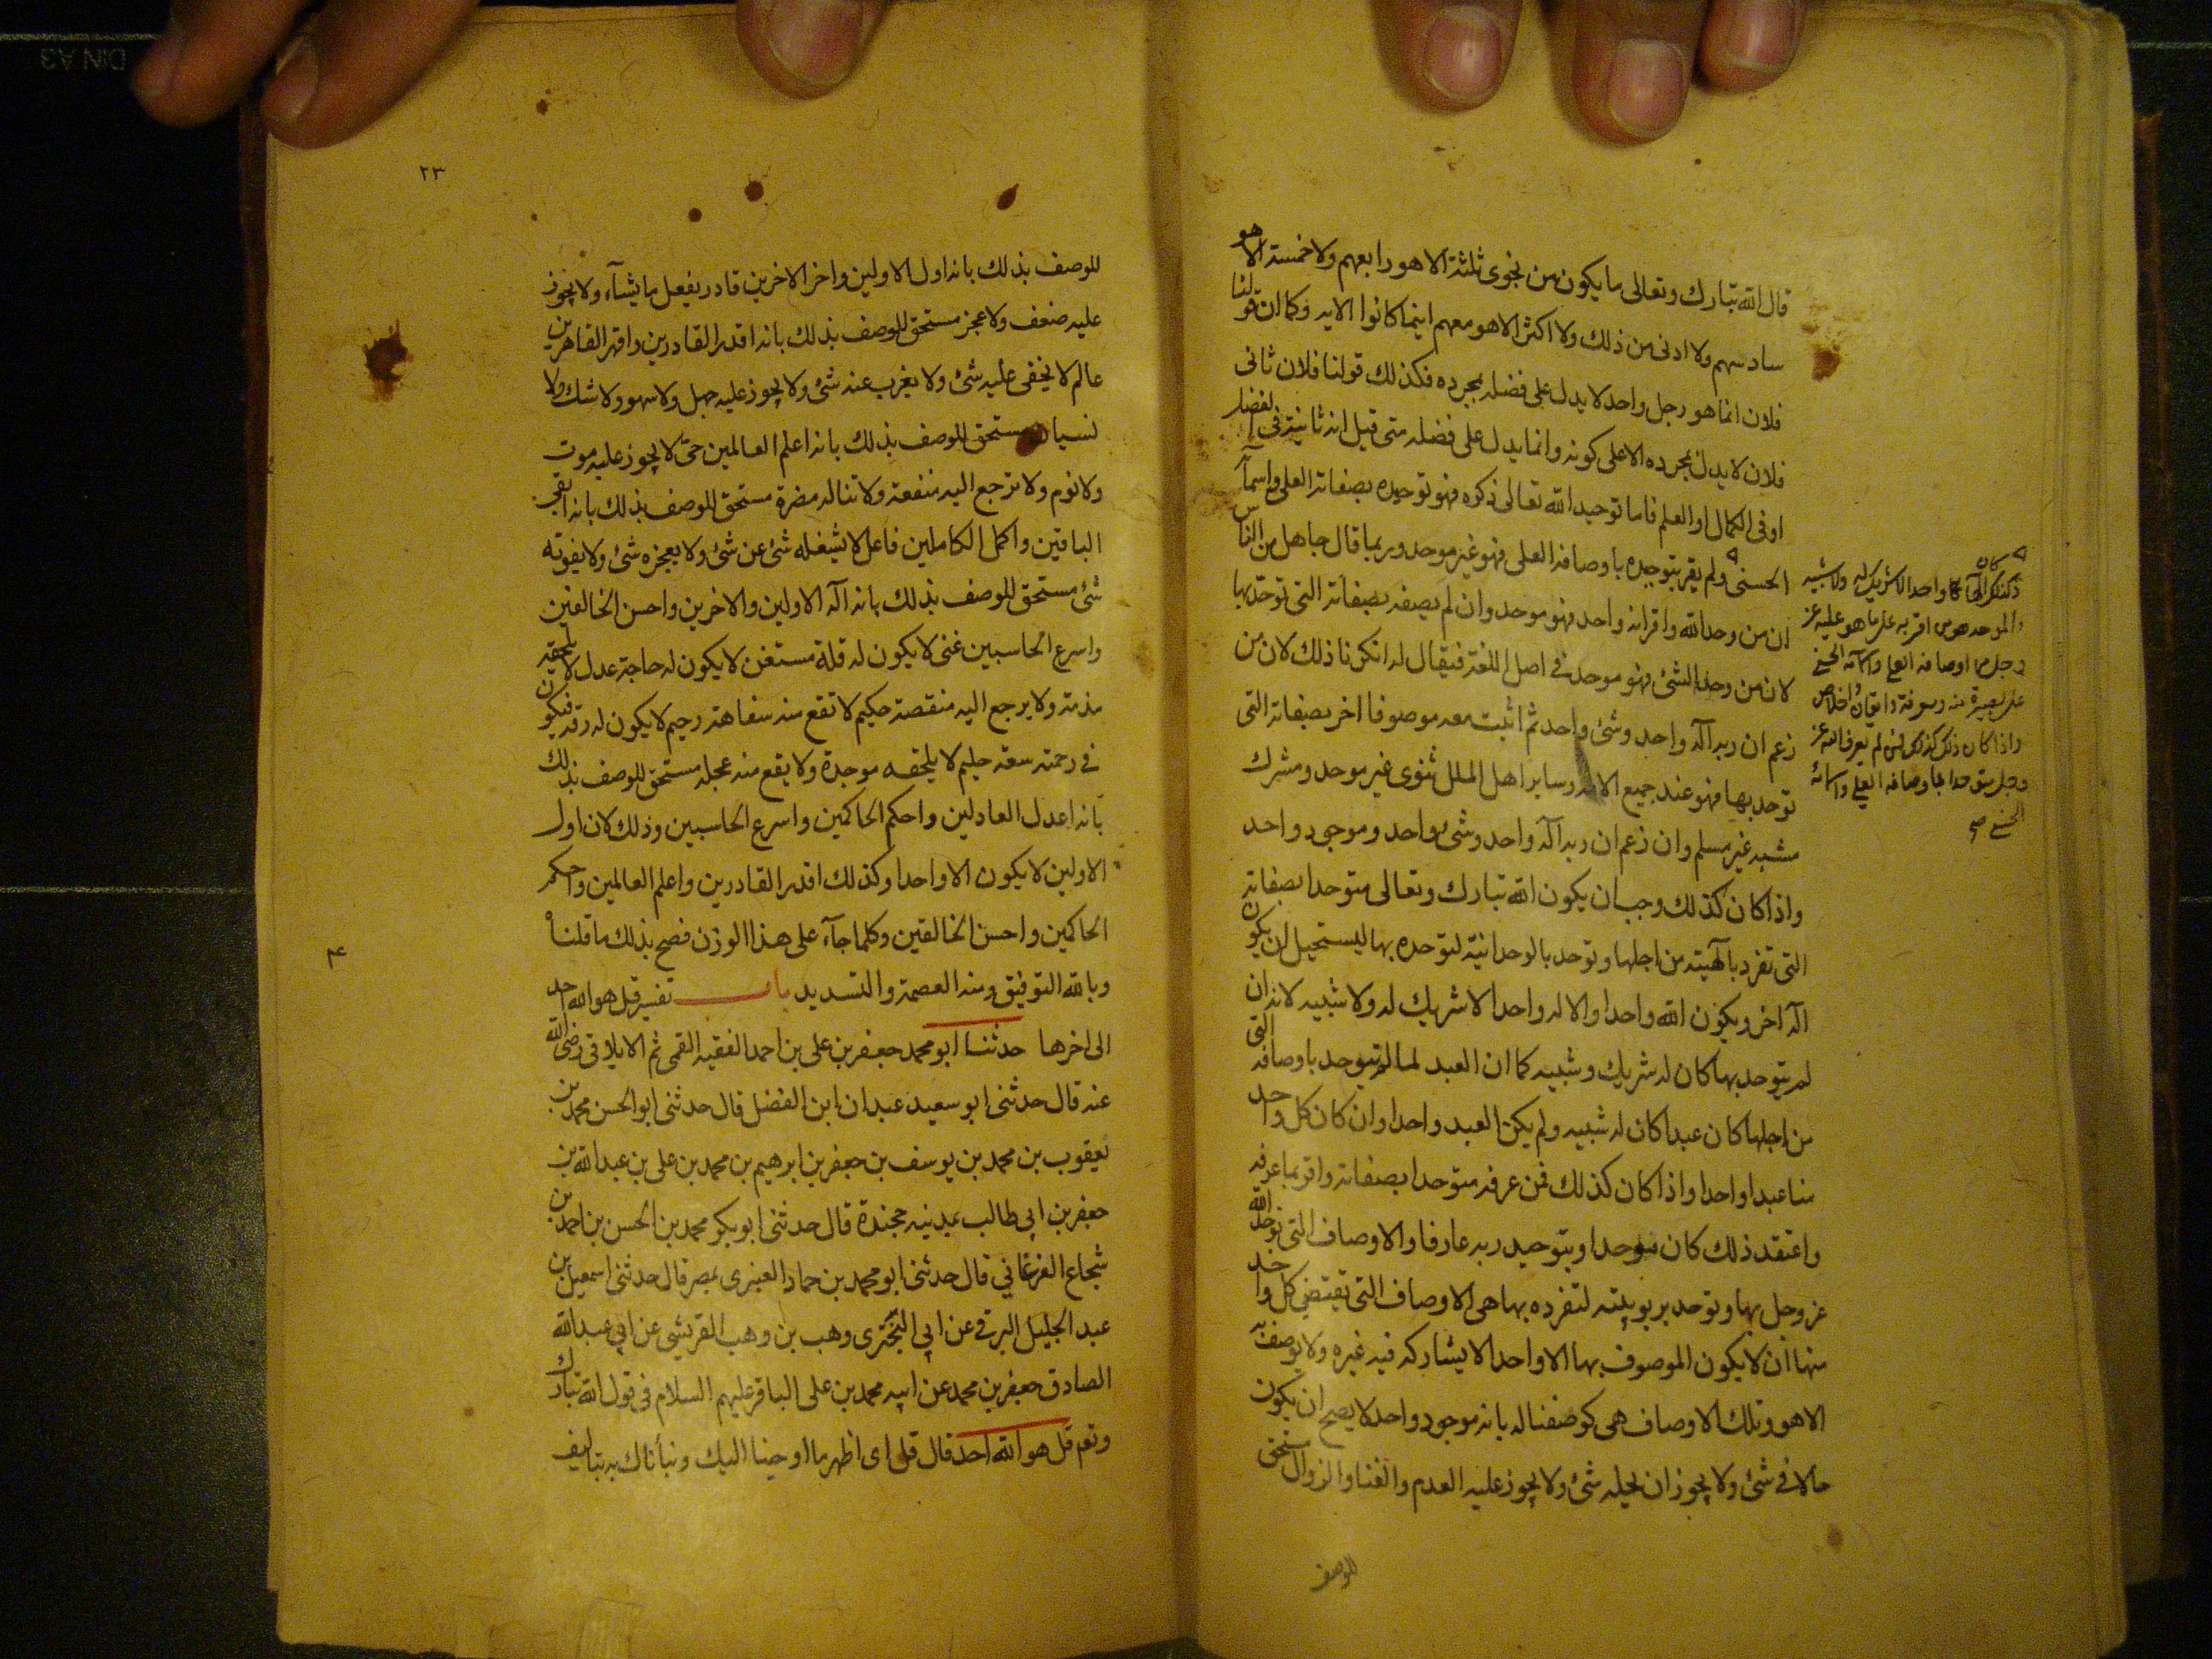 قال الله تبارك وتعالى ما يكون من نجوى ثلثة الا هو رابعهم ولا خمسة الا هو
سادسهم ولا ادنى من ذلك ولا اكثر الا هو معهم اينما كانوا الايه وكما ان قولنا
فلان انما هو رجل واحد لا يدل على فضله بمجرده فكذلك قولنا فلان ثانى
فلان لا يدل بمجرده الا على كونه وانما يدل على فضله متى قيل انه ثانيه فى الفضل
او فى الكمال او العلم فاما توحيد الله تعالى ذكره فهو توحيده بصفاته العلى واسمآ
الحسنى ولم يقر بتوحيده باوصافه العلى فهو غير موحد وربما قال جاهل من الناس
ان من وحد الله واقر انه واحد فهو موحد وان لم يصفه بصفاته التى توحد بها
لان من وحد الشئ فهو موحد فى اصل اللغة فيقال له انكرنا ذلك لان من
زعم ان ربه اله واحد وشئ واحد ثم اثبت معه موصوفا اخر بصفاته التى
توحد بها فهو عند جميع الامه وساير اهل الملل ثنوى غير موحد ومشرك
مشبه غير مسلم وان زعم ان ربه اله واحد وشئ واحد وموجود واحد
واذا كان كذلك وجب ان يكون الله تبارك وتعالى متوحدا بصفاته
التى تفرد بآلهيته من اجلها وتوحد بالوحدانيه لتوحده بها ليستحيل ان يكون
اله اخر ويكون الله واحدا والاله واحدا لا شريك له ولا شبيه لانه ان
لم يتوحد بها كان له شريك وشبيه كما ان العبد لما لم يتوحد باوصافه التى
من اجلها كان عبدا كان له شبيه ولم يكن العبد واحدا وان كان كل واحد
منا عبدا واحدا واذا كان كذلك فمن عرفه متوحدا بصفاته واقر بما عرفه
واعتقد ذلك كان موحدا وبتوحيد ربه عارفا والاوصاف التى توحد الله
عز وجل بها وتوحد بربوبيته لتفرده بها هى الاوصاف التى تقتضى كل واحد
منها ان لا يكون الموصوف بها الا واحدا لا يشاركه فيه غيره ولا يوصف به
الا هو وتلك الاوصاف هى كوصفنا له بانه موجود واحد لا يصح ان يكون
حالا فى شئ ولا يجوز ان يحله شئ ولا يجوز عليه العدم والفنا والزوال مستحق
للوصف
كان
ذلك كذلك الها واحدا لا شريك له ولا شبيه
والموحد هو من اقر به على ما هو عليه عز
وجل من اوصافه العلى واسمآئه الحسنى
على بصيرة منه ومعرفة وايقان واخلاص
واذا كان ذلك كذلك فمن لم يعرف الله عز
وجل متوحدا باوصافه العلى واسمائه
الحسنى صح
٢٣
للوصف بذلك بانه اول الاولين واخر الاخرين قادر يفعل ما يشآء ولا يجوز
عليه ضعف ولا عجز مستحق للوصف بذلك بانه اقدر القادرين واقهر القاهرين
عالم لا يخفى عليه شئ ولا يعزب عنه شئ ولا يجوز عليه جهل ولا سهو ولا شك ولا
نسيان مستحق للوصف بذلك بانه اعلم العالمين حى لا يجوز عليه موت
ولا نوم ولا ترجع اليه منفعة ولا تناله مضرة مستحق للوصف بذلك بانه ابقى
الباقين واكمل الكاملين فاعل لا يشغله شئ عن شئ ولا يعجزه شئ ولا يفوته
شئ مستحق للوصف بذلك بانه اله الاولين والاخرين واحسن الخالقين
واسرع الحاسبين غنى لا يكون له قلة مستغن لا يكون له حاجة عدل لا يلحقه
مذمة ولا يرجع اليه منقصة حكيم لا تقع منه سفاهة رحيم لا يكون له رقة فيكون
فى رحمته سعة حليم لا يلحقه موجدة ولا يقع منه عجله مستحق للوصف بذلك
بانه اعدل العادلين واحكم الحاكمين واسرع الحاسبين وذلك لان اول
الاولين لا يكون الا واحدا وكذلك اقدر القادرين واعلم العالمين واحكم
الحاكمين واحسن الخالقين وكلما جآء على هذا الوزن فصح بذلك ما قلناه
وبالله التوفيق ومنه العصمة والتسديد باب تفسير قل هو الله احد
٤
الى اخرها حدثنا ابو محمد جعفر بن على بن احمد الفقيه القمى ثم الايلاقى رضى الله
عنه قال حدثنى ابو سعيد عبدان ابن الفضل قال حدثنى ابو الحسن محمد بن
يعقوب بن محمد بن يوسف بن جعفر بن ابرهيم بن محمد بن على بن عبد الله بن
جعفر بن ابى طالب بمدينه خجندة قال حدثنى ابو بكر محمد بن الحسن بن احمد بن
شجاع الفرغانى قال حدثنى ابو محمد بن حماد العنبرى بمصر قال حدثنى اسمعيل بن
عبد الجليل البرقى عن ابى البخترى وهب بن وهب القرشى عن ابى عبد الله
الصادق جعفر بن محمد عن ابيه محمد بن على الباقر عليهم السلام فى قول الله تبارك
وتعم قل هو الله احد قال قل اى اظهر ما اوحينا اليك ونبأناك به بتاليف